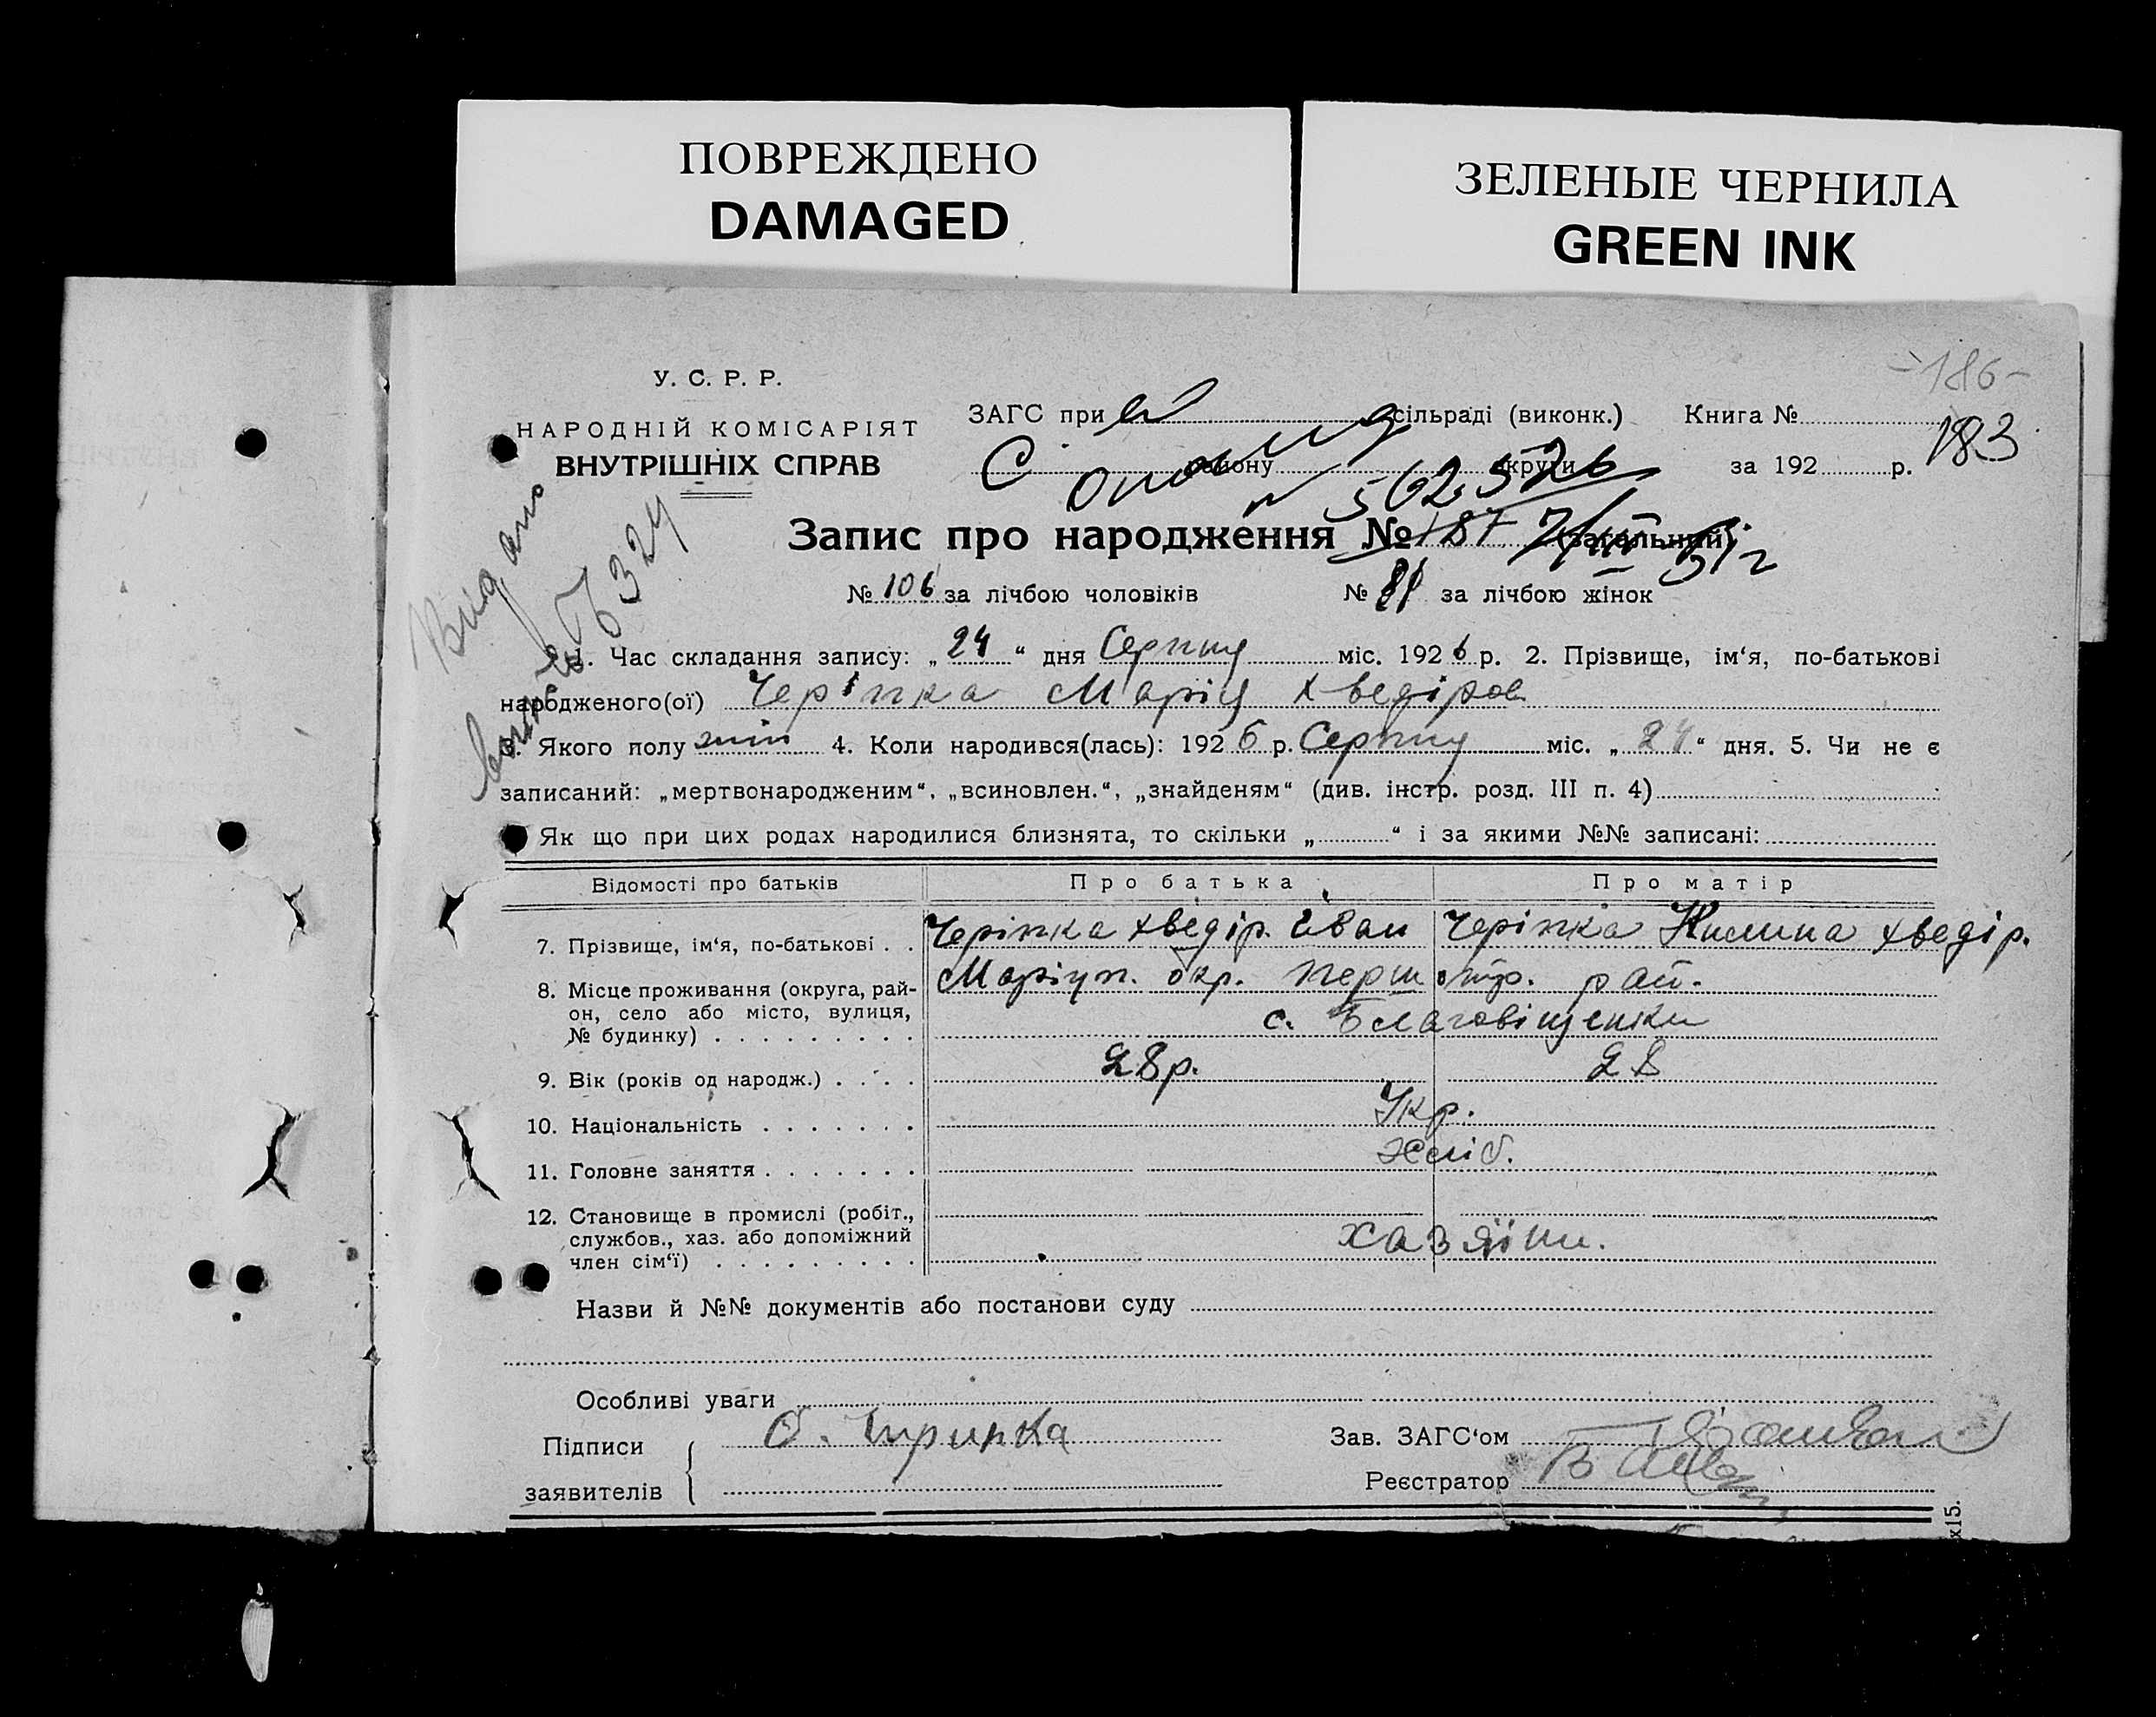 ПОВРЕЖДЕНО
DAMAGED
ЗЕЛЕНЫЕ ЧЕРНИЛА
GREEN INK
-186-
183
У. С. Р. Р.
НАРОДНІЙ КОМІСАРІЯТ
ВНУТРІШНІХ СПРАВ
ЗАГС при сільраді (виконк.) Книга №
району округи за 192 р.
562526
Запис про народження № 187 (загальний)
№ 106 за лічбою чоловіків № 81 за лічбою жінок
Видано
1. Час складання запису: „24“ дня Серпня міс. 1926 р. 2. Прізвище, ім‘я, по-батькові
народженого(ої) Черіпка Марія Хведіров
3. Якого полу жін 4. Коли народився(лась): 1926 р. Серпня міс. „24“ дня. 5. Чи не є
записаний: „мертвонародженим“, „всиновлен.“, „знайденям“ (див. інстр. розд. III п. 4)
Як що при цих родах народилися близнята, то скільки „ “ і за якими №№ записані:
Відомості про батьків Про батька Про матір
7. Прізвище, ім‘я, по-батькові . . Черіпка Хведір. Іван Черіпка Килина Хведір.
8. Місце проживання (округа, рай- Маріуп. окр. Першотр. рай.
он, село або місто, вулиця, с. Благовіщенки
№ будинку)
9. Вік (років од народж.) . . . . 28 р. 28
10. Національність Укр.
11. Головне заняття Хліб.
12. Становище в промислі (робіт.,
службов., хаз. або допоміжний хазяїни.
член сім‘ї)
Назви й №№ документів або постанови суду
Особливі уваги
Підписи Чирипка Зав. ЗАГС‘ом
заявителів Реєстратор
х15.